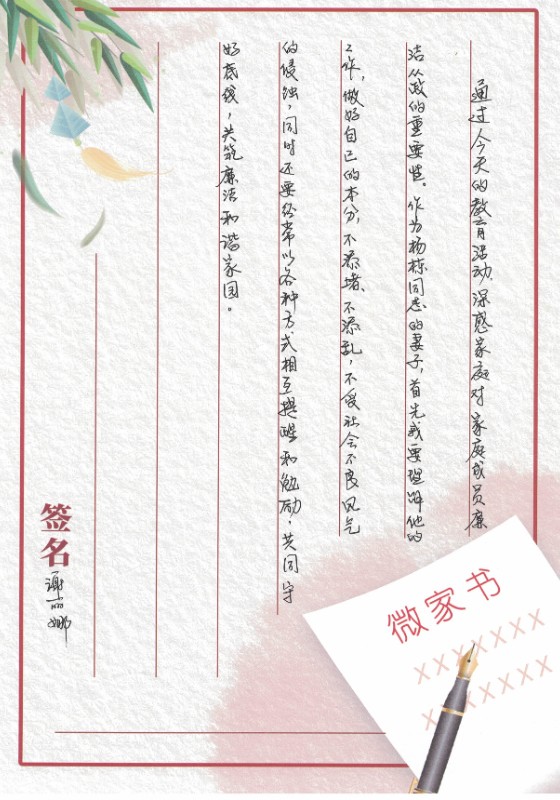 通过今天的教育活动,深感家庭对家庭成员廉
洁从政的重要性。作为杨栋同志的妻子,首先我要理解他的
工作,做好自己的本分,不添堵、不添乱,不受社会不良风气
的侵蚀,同时还要经常以各种方式相互提醒和勉励,共同守
好底线,共筑廉洁和谐家园。
签名
谢丽娜
微家书
XXXXXXX
XXXXXXX